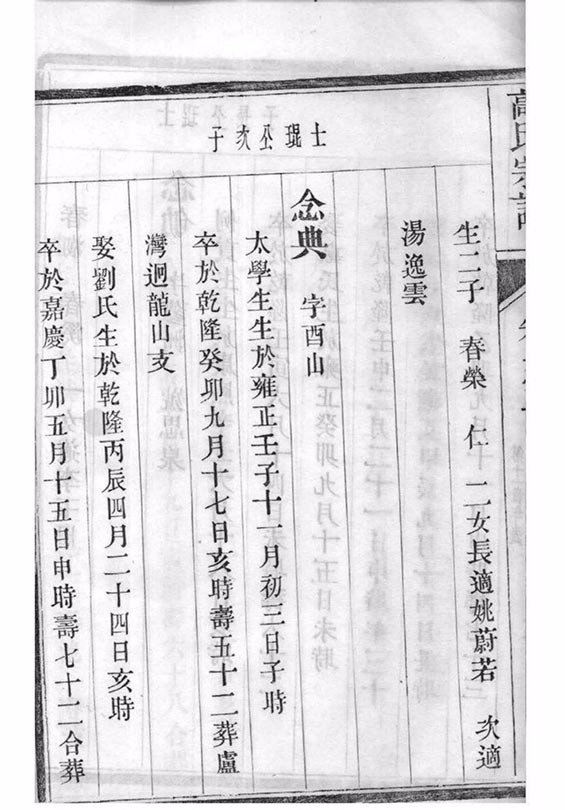 高氏宗譜
生二子 春榮 仁 二女長適姚蔚若 次適
湯逸雲
士琨公次子
念典 字酉山
太學生生於雍正壬子十一月初三日子時
卒於乾隆癸卯九月十七日亥時壽五十二葬盧
灣迴龍山支
娶劉氏生於乾隆丙辰四月二十四日亥時
卒於嘉慶丁卯五月十五日申時壽七十二合葬